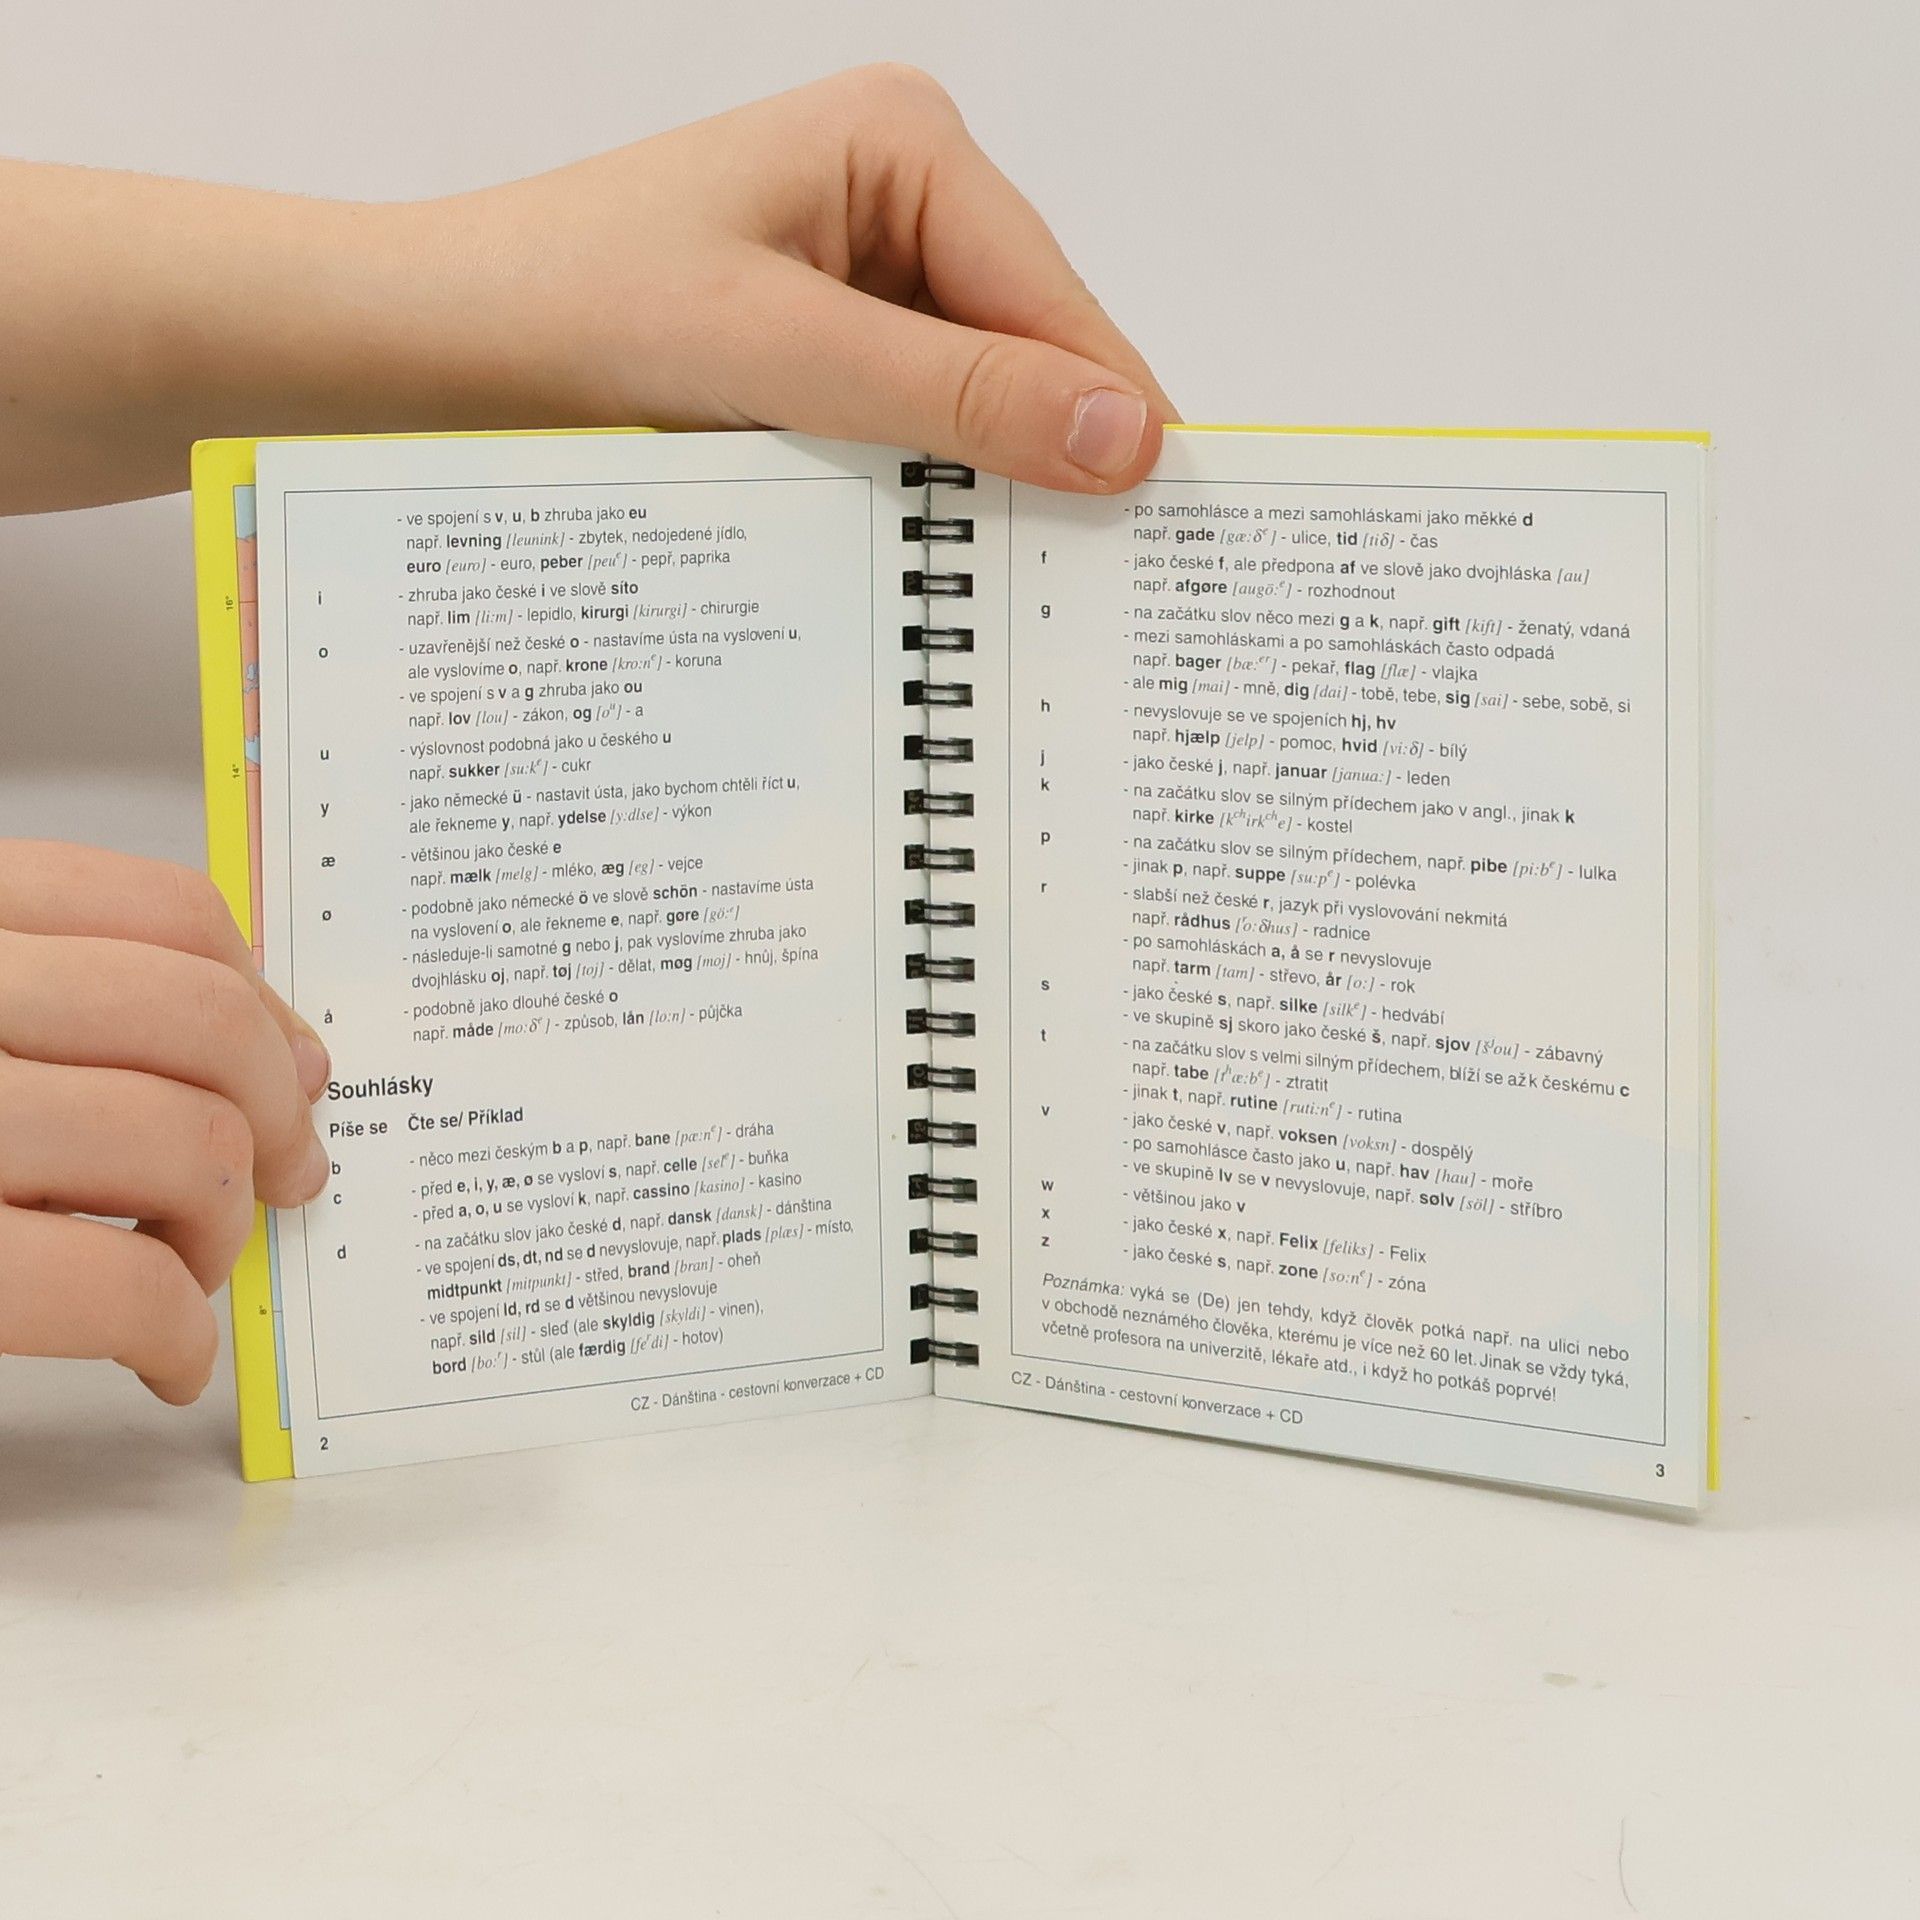 - ve spojení s v, u, b zhruba jako eu
např. levning [leunink] - zbytek, nedojedené jídlo,
euro [euro] - euro, peber [peuᵉ] - pepř, paprika
i - zhruba jako české i ve slově síto
např. lim [li:m] - lepidlo, kirurgi [kirurgi] - chirurgie
o - uzavřenější než české o - nastavíme ústa na vyslovení u,
ale vyslovíme o, např. krone [kro:nᵉ] - koruna
- ve spojení s v a g zhruba jako ou
např. lov [lou] - zákon, og [oᵘ] - a
u - výslovnost podobná jako u českého u
např. sukker [su:kᵉ] - cukr
y - jako německé ü - nastavit ústa, jako bychom chtěli říct u,
ale řekneme y, např. ydelse [y:dlse] - výkon
æ - většinou jako české e
např. mælk [melg] - mléko, æg [eg] - vejce
ø - podobně jako německé ö ve slově schön - nastavíme ústa
na vyslovení o, ale řekneme e, např. gøre [gö:ᵉ]
- následuje-li samotné g nebo j, pak vyslovíme zhruba jako
dvojhlásku oj, např. tøj [toj] - dělat, møg [moj] - hnůj, špína
å - podobně jako dlouhé české o
např. måde [mo:δᵉ] - způsob, lån [lo:n] - půjčka
Souhlásky
Píše se Čte se/ Příklad
b - něco mezi českým b a p, např. bane [pæ:nᵉ] - dráha
c - před e, i, y, æ, ø se vysloví s, např. celle [selᵉ] - buňka
- před a, o, u se vysloví k, např. cassino [kasino] - kasino
d - na začátku slov jako české d, např. dansk [dansk] - dánština
- ve spojení ds, dt, nd se d nevyslovuje, např. plads [plæs] - místo,
midtpunkt [mitpunkt] - střed, brand [bran] - oheň
- ve spojení ld, rd se d většinou nevyslovuje
např. sild [sil] - sleď (ale skyldig [skyldi] - vinen),
bord [bo:ʳ] - stůl (ale færdig [feʳdi] - hotov)
CZ - Dánština - cestovní konverzace + CD
2
- po samohlásce a mezi samohláskami jako měkké d
např. gade [gæ:δᵉ] - ulice, tid [tiδ] - čas
f - jako české f, ale předpona af ve slově jako dvojhláska [au]
např. afgøre [augö:ᵉ] - rozhodnout
g - na začátku slov něco mezi g a k, např. gift [kift] - ženatý, vdaná
- mezi samohláskami a po samohláskách často odpadá
např. bager [bæ:ᵉʳ] - pekař, flag [flæ] - vlajka
- ale mig [mai] - mně, dig [dai] - tobě, tebe, sig [sai] - sebe, sobě, si
h - nevyslovuje se ve spojeních hj, hv
např. hjælp [jelp] - pomoc, hvid [vi:δ] - bílý
j - jako české j, např. januar [janua:] - leden
k - na začátku slov se silným přídechem jako v angl., jinak k
např. kirke [kᶜʰirkᶜʰe] - kostel
p - na začátku slov se silným přídechem, např. pibe [pi:bᵉ] - lulka
- jinak p, např. suppe [su:pᵉ] - polévka
r - slabší než české r, jazyk při vyslovování nekmitá
např. rådhus [ʳo:δhus] - radnice
- po samohláskách a, å se r nevyslovuje
např. tarm [tam] - střevo, år [o:] - rok
s - jako české s, např. silke [silkᵉ] - hedvábí
- ve skupině sj skoro jako české š, např. sjov [šʲou] - zábavný
t - na začátku slov s velmi silným přídechem, blíží se až k českému c
např. tabe [tʰæ:bᵉ] - ztratit
- jinak t, např. rutine [ruti:nᵉ] - rutina
v - jako české v, např. voksen [voksn] - dospělý
- po samohlásce často jako u, např. hav [hau] - moře
- ve skupině lv se v nevyslovuje, např. sølv [söl] - stříbro
w - většinou jako v
x - jako české x, např. Felix [feliks] - Felix
z - jako české s, např. zone [so:nᵉ] - zóna
Poznámka: vyká se (De) jen tehdy, když člověk potká např. na ulici nebo
v obchodě neznámého člověka, kterému je více než 60 let. Jinak se vždy tyká,
včetně profesora na univerzitě, lékaře atd., i když ho potkáš poprvé!
CZ - Dánština - cestovní konverzace + CD
3
16°
14°
8°